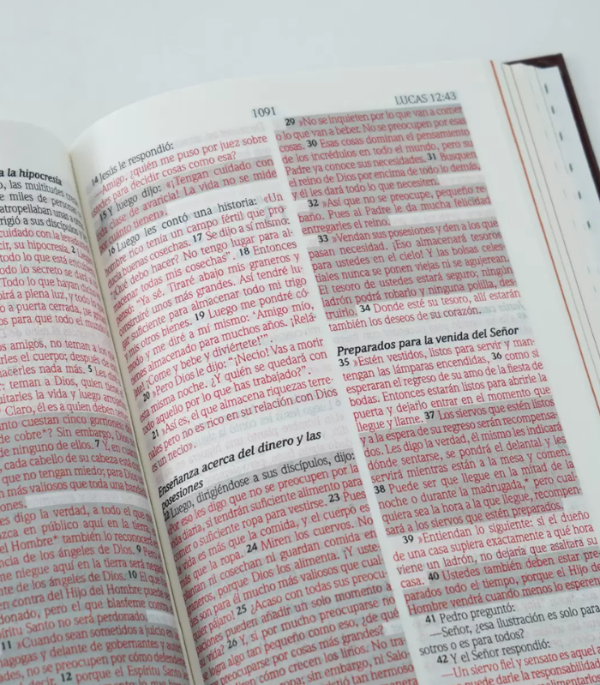 a la hipocresía
o, las multitudes
e miles de personas
atropellaban unas a
rigió a sus discípulos
cuidado con la
cir, su hipocresía. 2
todo lo que está
lo secreto se dará
Todo lo que hayan
irá a plena luz, y todo
o a puerta cerrada,
s para que todo el mundo
s amigos, no teman a los
rles el cuerpo; después
acerles nada más. 5
r: teman a Dios, quien
uitarles la vida y luego
Claro, él es a quien deben
anto cuestan cinco gorriones
de cobre*? Sin embargo, Dios
de ninguno de ellos. 7 Y, en
, cada cabello de su cabeza
que no tengan miedo; para Dios
más valiosos que toda una
es digo la verdad, a todo el que
zca en público aquí en la tierra
el Hombre* también lo reconocerá
cia de los ángeles de Dios. 9 Pero
me niegue aquí en la tierra será
nte de los ángeles de Dios. 10 El que
en contra del Hijo del Hombre puede
donado, pero el que blasfeme
píritu Santo no será perdonado.
11 »Cuando sean sometidos a juicio en
nagogas y delante de gobernantes y
des, no se preocupen por cómo
12 porque el Espíritu Santo
1091
14 Jesús le respondió:
—Amigo, ¿quién me puso por juez sobre
ustedes para decidir cosas como esa?
15 Y luego dijo: «¡Tengan cuidado con
toda clase de avaricia! La vida no se mide
por cuánto tienen».
16 Luego les contó una historia: «Un
hombre rico tenía un campo fértil que
producía buenas cosechas. 17 Se dijo a sí mismo:
“¿Qué debo hacer? No tengo lugar para
almacenar todas mis cosechas”. 18 Entonces
dijo: “Ya sé. Tiraré abajo mis graneros y
construiré unos más grandes. Así tendré
lugar suficiente para almacenar todo mi trigo
y mis otros bienes. 19 Luego me pondré
cómodo y me diré a mí mismo: ‘Amigo mío,
tienes almacenado para muchos años. ¡Relájate!
¡Come y bebe y diviértete!’”.
20 »Pero Dios le dijo: “¡Necio! Vas a morir
esta misma noche. ¿Y quién se quedará con
todo aquello por lo que has trabajado?”.
21 »Así es, el que almacena riquezas
terrenales pero no es rico en su relación con Dios
es un necio».
Enseñanza acerca del dinero y las
posesiones
22 Luego, dirigiéndose a sus discípulos, dijo:
«Por eso les digo que no se preocupen por la
vida diaria, si tendrán suficiente alimento para
comer o suficiente ropa para vestirse. 23 Pues
la vida es más que la comida, y el cuerpo es
más que la ropa. 24 Miren los cuervos. No
plantan ni cosechan ni guardan comida en
graneros, porque Dios los alimenta. ¡Y ustedes
son para él mucho más valiosos que cualquier
pájaro! 25 ¿Acaso con todas sus preocupaciones
pueden añadir un solo momento a
su vida? 26 Y, si por mucho preocuparse no
logra algo tan pequeño como eso, ¿de qué
sirve preocuparse por cosas más grandes?
cómo crecen los lirios. No
ropa; sin embargo, ni
LUCAS 12:43
29 »No se inquieten por lo que van a comer
o lo que van a beber. No se preocupen por esas
cosas. 30 Esas cosas dominan el pensamiento
de los incrédulos en todo el mundo, pero su
Padre ya conoce sus necesidades. 31 Busquen
el reino de Dios por encima de todo lo demás,
y él les dará todo lo que necesiten.
32 »Así que no se preocupe, pequeño
rebaño. Pues al Padre le da mucha felicidad
entregarles el reino.
33 »Vendan sus posesiones y den a los que
pasan necesidad. ¡Eso almacenará tesoros
para ustedes en el cielo! Y las bolsas
celestiales nunca se ponen viejas ni se agujerean.
El tesoro de ustedes estará seguro; ningún
ladrón podrá robarlo y ninguna polilla,
destruirlo. 34 Donde esté su tesoro, allí estarán
también los deseos de su corazón.
Preparados para la venida del Señor
35 »Estén vestidos, listos para servir y
mantengan las lámparas encendidas, 36 como si
esperaran el regreso de su amo de la fiesta de
bodas. Entonces estarán listos para abrirle la
puerta y dejarlo entrar en el momento que
llegue y llame. 37 Los siervos que estén listos
y a la espera de su regreso serán recompensados.
Les digo la verdad, él mismo les indicará
dónde sentarse, se pondrá el delantal y les
servirá mientras están a la mesa y comen.
38 Puede ser que llegue en la mitad de la
noche o durante la madrugada,* pero cualquiera
sea la hora a la que llegue, recompensará
a los siervos que estén preparados.
39 »Entiendan lo siguiente: si el dueño
de una casa supiera exactamente a qué hora
viene un ladrón, no dejaría que asaltara su
casa. 40 Ustedes también deben estar
preparados todo el tiempo, porque el Hijo del
Hombre vendrá cuando menos lo esperen».
41 Pedro preguntó:
—Señor, ¿esa ilustración es solo para
nosotros o es para todos?
42 Y el Señor respondió:
—Un siervo fiel y sensato es aquel a
puede darle la responsabilidad